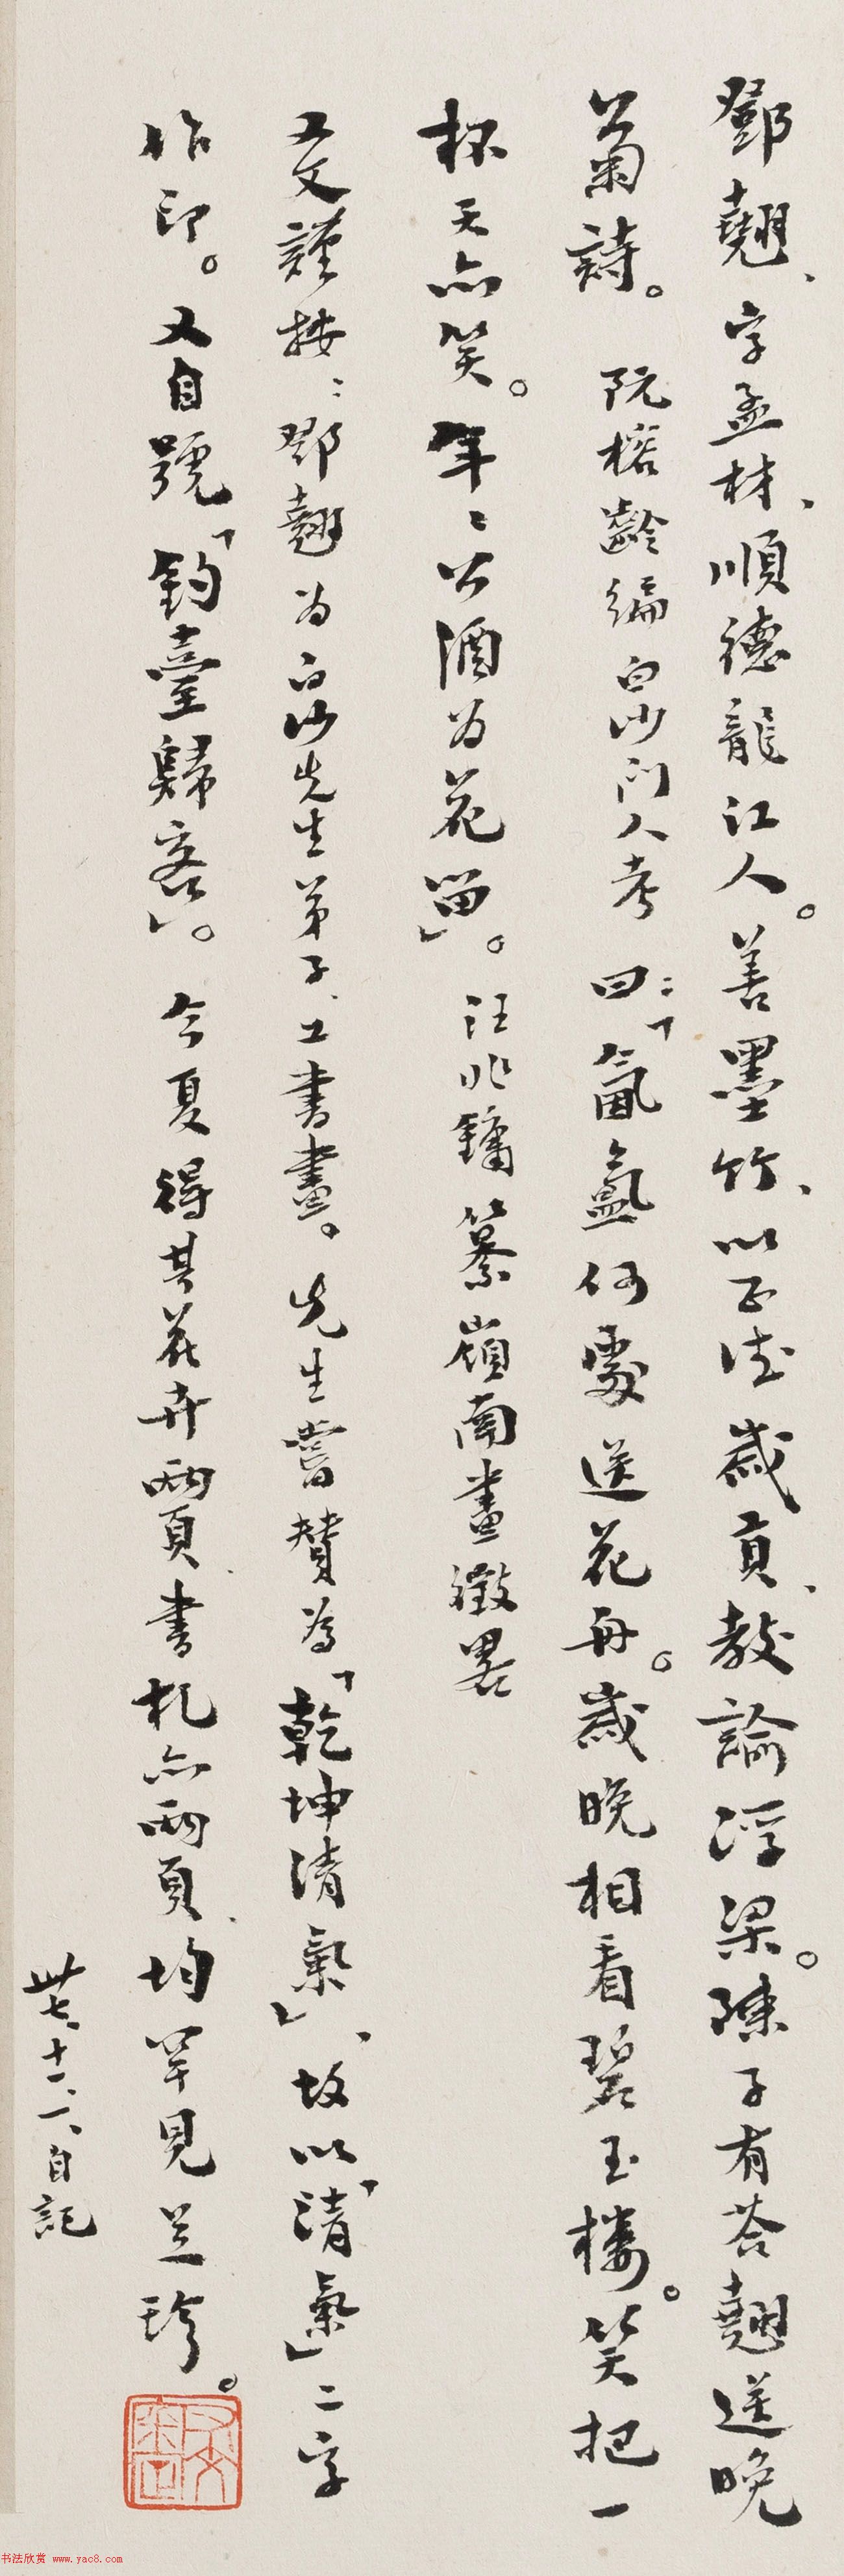 鄧翹、字孟材、順德龍江人。善墨竹、以正德歲貢、教諭浮梁。陳子有荅翹送晚
菊詩。阮榕齡編白沙門人考曰：「氤氳何處送花舟。歲晚相看碧玉樓。笑把一
杯天亦笑。年〻公酒為花留」。汪兆鏞纂嶺南畫徵畧
又文謹按：鄧翹為白沙先生弟子、工書畫。先生嘗贊為「乾坤清氣」、故以「清氣」二字
作印。又自號「釣臺歸客」。今夏得其花卉兩頁、書札亦兩頁、均罕見足珍。
卅七、十一、一、自記
书法欣赏 www.yac8.com